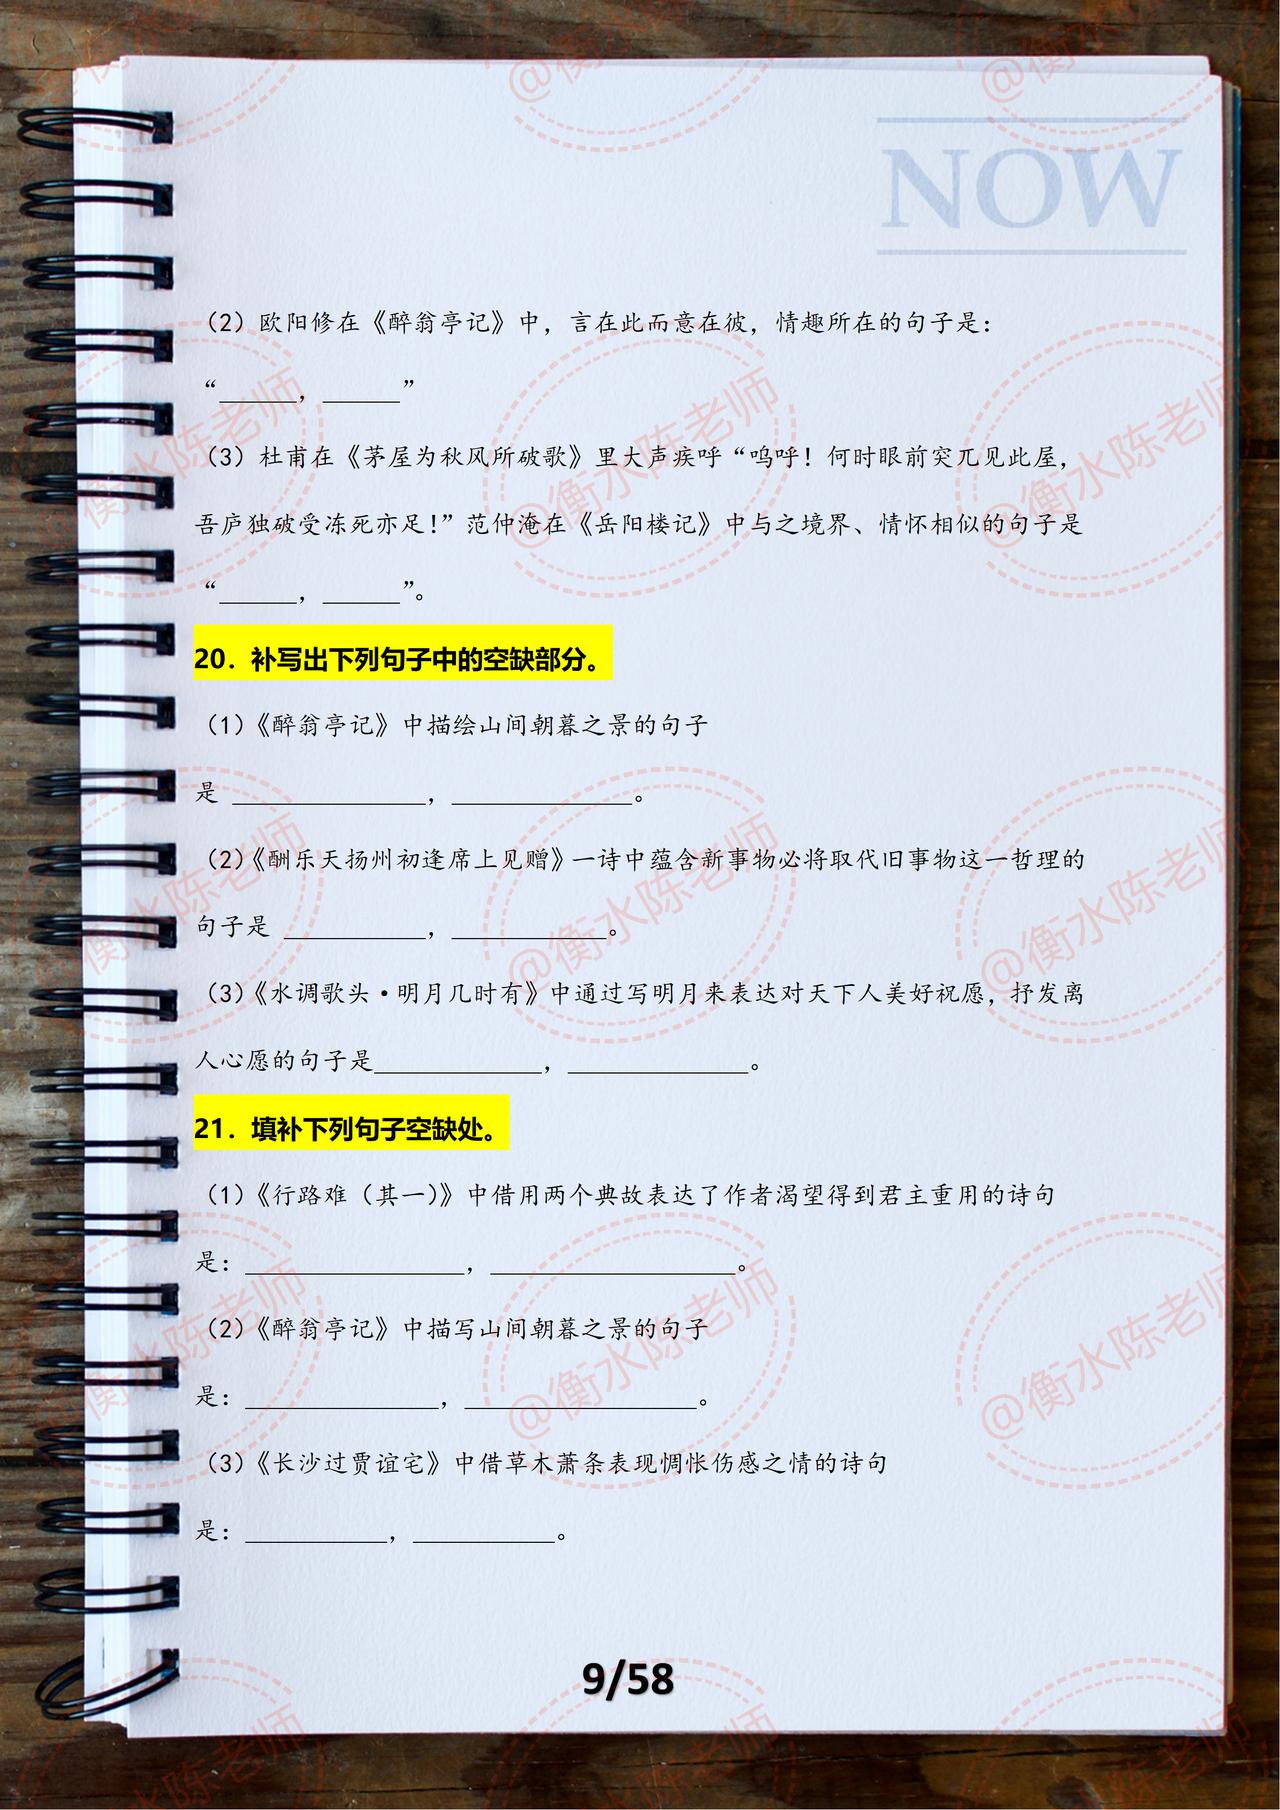 NOW
（2）欧阳修在《醉翁亭记》中，言在此而意在彼，情趣所在的句子是：
“______，______”
（3）杜甫在《茅屋为秋风所破歌》里大声疾呼“呜呼！何时眼前突兀见此屋，
吾庐独破受冻死亦足！”范仲淹在《岳阳楼记》中与之境界、情怀相似的句子是
“______，______”。
20．补写出下列句子中的空缺部分。
（1）《醉翁亭记》中描绘山间朝暮之景的句子
是 _______________，______________。
（2）《酬乐天扬州初逢席上见赠》一诗中蕴含新事物必将取代旧事物这一哲理的
句子是 ___________，____________。
（3）《水调歌头·明月几时有》中通过写明月来表达对天下人美好祝愿，抒发离
人心愿的句子是_____________，______________。
21．填补下列句子空缺处。
（1）《行路难（其一）》中借用两个典故表达了作者渴望得到君主重用的诗句
是：_________________，___________________。
（2）《醉翁亭记》中描写山间朝暮之景的句子
是：_______________，__________________。
（3）《长沙过贾谊宅》中借草木萧条表现惆怅伤感之情的诗句
是：___________，___________。
9/58
@衡水陈老师
@衡水陈老师
@衡水陈老师
@衡水陈老师
@衡水陈老师
@衡水陈老师